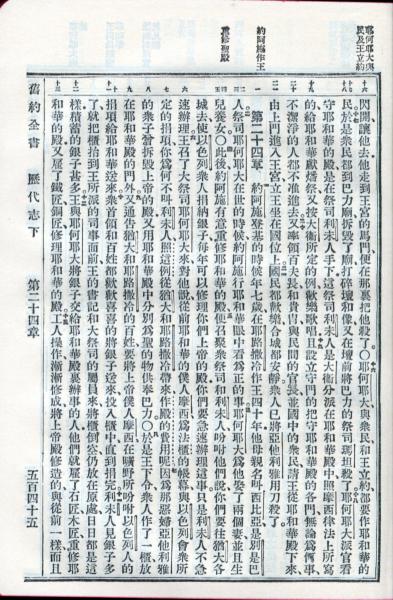 耶何耶大與
民及王立約
約阿施作王
重修聖殿
閃開讓他去他走到王宮的馬門便在那裏把他殺了〇耶何耶大與衆民和王立約都要作耶和華的
民於是衆民都到巴力廟拆毀了廟打碎壇和像又在壇前將巴力的祭司瑪坦殺了耶何耶大派官看
守耶和華的殿是在祭司利未人手下這祭司利未人是大衛分派在耶和華殿中照摩西律法上所寫
的給耶和華獻燔祭又按大衛所定的例歡樂歌唱且設立守門的把守耶和華殿的各門無論爲何事
不潔淨的人都不准進去又率領百夫長和貴冑與民間的官長並國中的衆民請王從耶和華殿下來
由上門進入王宮立王坐在國位上國民都歡樂合城都安靜衆人已將亞他利雅用刀殺了
第二十四章 約阿施登基的時候年七歲在耶路撒冷作王四十年他母親名叫西比亞是別是巴
人祭司耶何耶大在世的時候約阿施行耶和華眼中看爲正的事耶何耶大爲他娶了兩個妻並且生
兒養女〇此後約阿施有意重修耶和華的殿便召聚衆祭司和利未人吩咐他們說你們要往猶大各
城去使以色列衆人捐納銀子每年可以修理你們上帝的殿你們要急速辦理這事只是利未人不急
速辦理王召了大祭司耶何耶大來對他說從前耶和華的僕人摩西爲法櫃的帳幕與以色列會衆所
定的捐項你爲何不叫利未人照這例從猶大和耶路撒冷帶來作殿的費用呢因爲那惡婦亞他利雅
的衆子曾拆毀上帝的殿又用耶和華殿中分別爲聖的物供奉巴力〇於是王下令衆人作了一櫃放
在耶和華殿的門外又通告猶大和耶路撒冷的百姓要將上帝僕人摩西在曠野所吩咐以色列人的
捐項給耶和華送來衆首領和百姓都歡歡喜喜的將銀子送來投入櫃中直到捐完利未人見銀子多
了就把櫃抬到王所派的司事面前王的書記和大祭司的屬員來將櫃倒空仍放在原處日日都是這
樣積蓄的銀子甚多王與耶何耶大將銀子交給耶和華殿裏辦事的人他們就雇了石匠木匠重修耶
和華的殿又雇了鐵匠銅匠修理耶和華的殿工人操作漸漸修成將上帝殿修造的與從前一樣而且
舊約全書 歷代志下 第二十四章 五百四十五